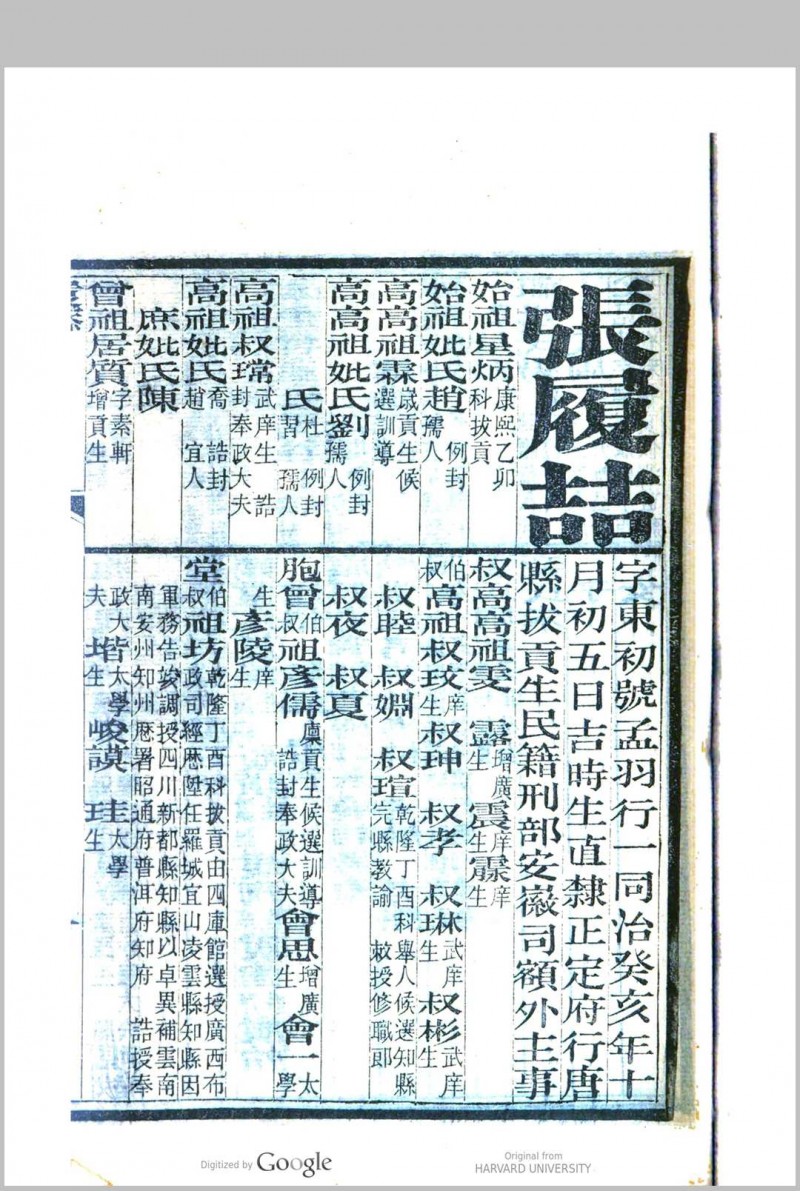 張履喆
字東初號孟羽行一同治癸亥年十
月初五日吉時生直隸正定府行唐
縣拔貢生民籍刑部安徽司額外主事
始祖星炳 康熙乙卯科拔貢
始祖妣氏趙 例封孺人
高高祖霖 歲貢生候選訓導
高高祖妣氏劉 例封孺人
氏杜習 例封孺人
高祖叔瑺 武庠生 誥封奉政大夫
高祖妣氏喬趙 誥封宜人
庶妣氏陳
曾祖居質 字素軒增貢生
叔高高祖雯 露增廣生 震庠生 霥庠生
伯叔高祖叔玟庠生 叔珅 叔孝 叔琳武庠生 叔彬武庠生
叔睦 叔婣 叔瑄 乾隆丁酉科舉人候選知縣完縣教諭 敕授修職郎
叔夜 叔夏
胞曾伯叔祖彥儒 廩貢生候選訓導 誥封奉政大夫 會思增廣生 會一太學
生 彥陵庠生
堂伯叔祖坊 乾隆丁酉科拔貢由四庫館選授廣西布
政司經歷陞任羅城宜山凌雲縣知縣因
軍務告竣調授四川新都縣知縣以卓異補雲南
南安州知州歷署昭通府普洱府知府 誥授奉
政大夫 堦太學生 峻謨 珪太學生
Digitized by Google
Original from
HARVARD UNIVERSITY